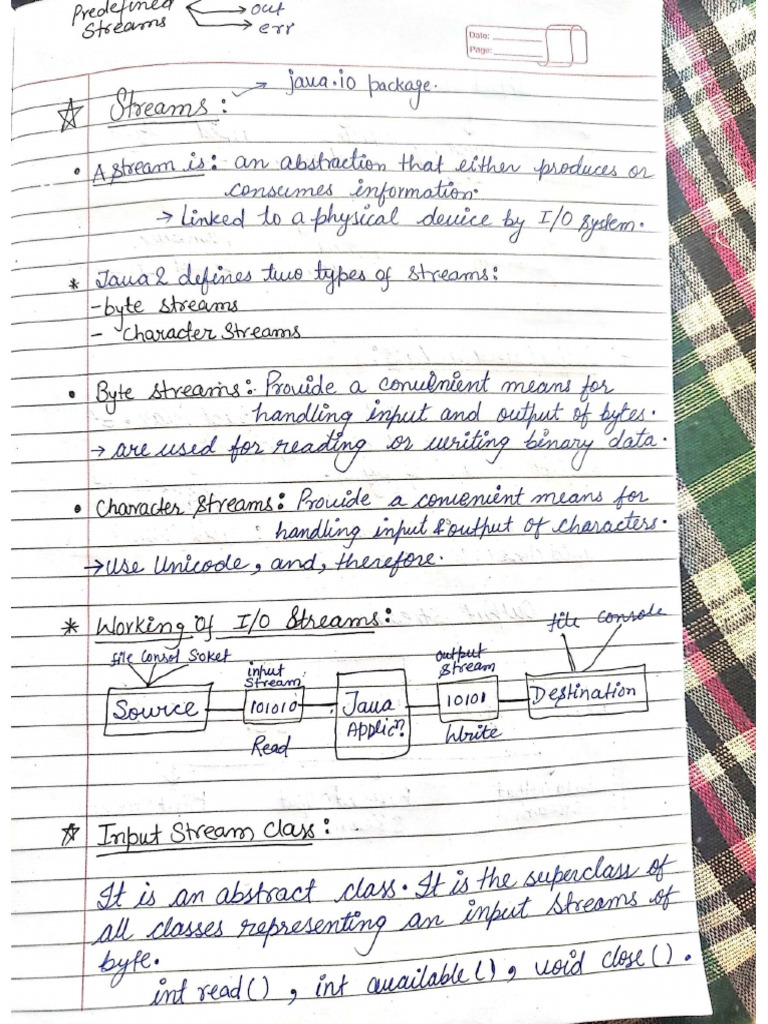 Predefined → out
Streams → err
Date:
Page:
→ java.io package.
☆ Streams:
• A stream is: an abstraction that either produces or
consumes information.
→ Linked to a physical device by I/O system.
* Java 2 defines two types of streams:
- byte streams
- Character Streams
• Byte streams: Provide a convenient means for
handling input and output of bytes.
→ are used for reading or writing binary data.
• Character Streams: Provide a convenient means for
handling input & output of characters.
→ Use Unicode, and, therefore.
* Working of I/O Streams:
file console
file Consol Soket
output
Stream
input
Stream
Source
101010
Java
Applicn.
10101
Destination
Read
Write
☆ Input Stream Class:
It is an abstract class. It is the superclass of
all classes representing an input streams of
byte.
int read(), int available(), void close().